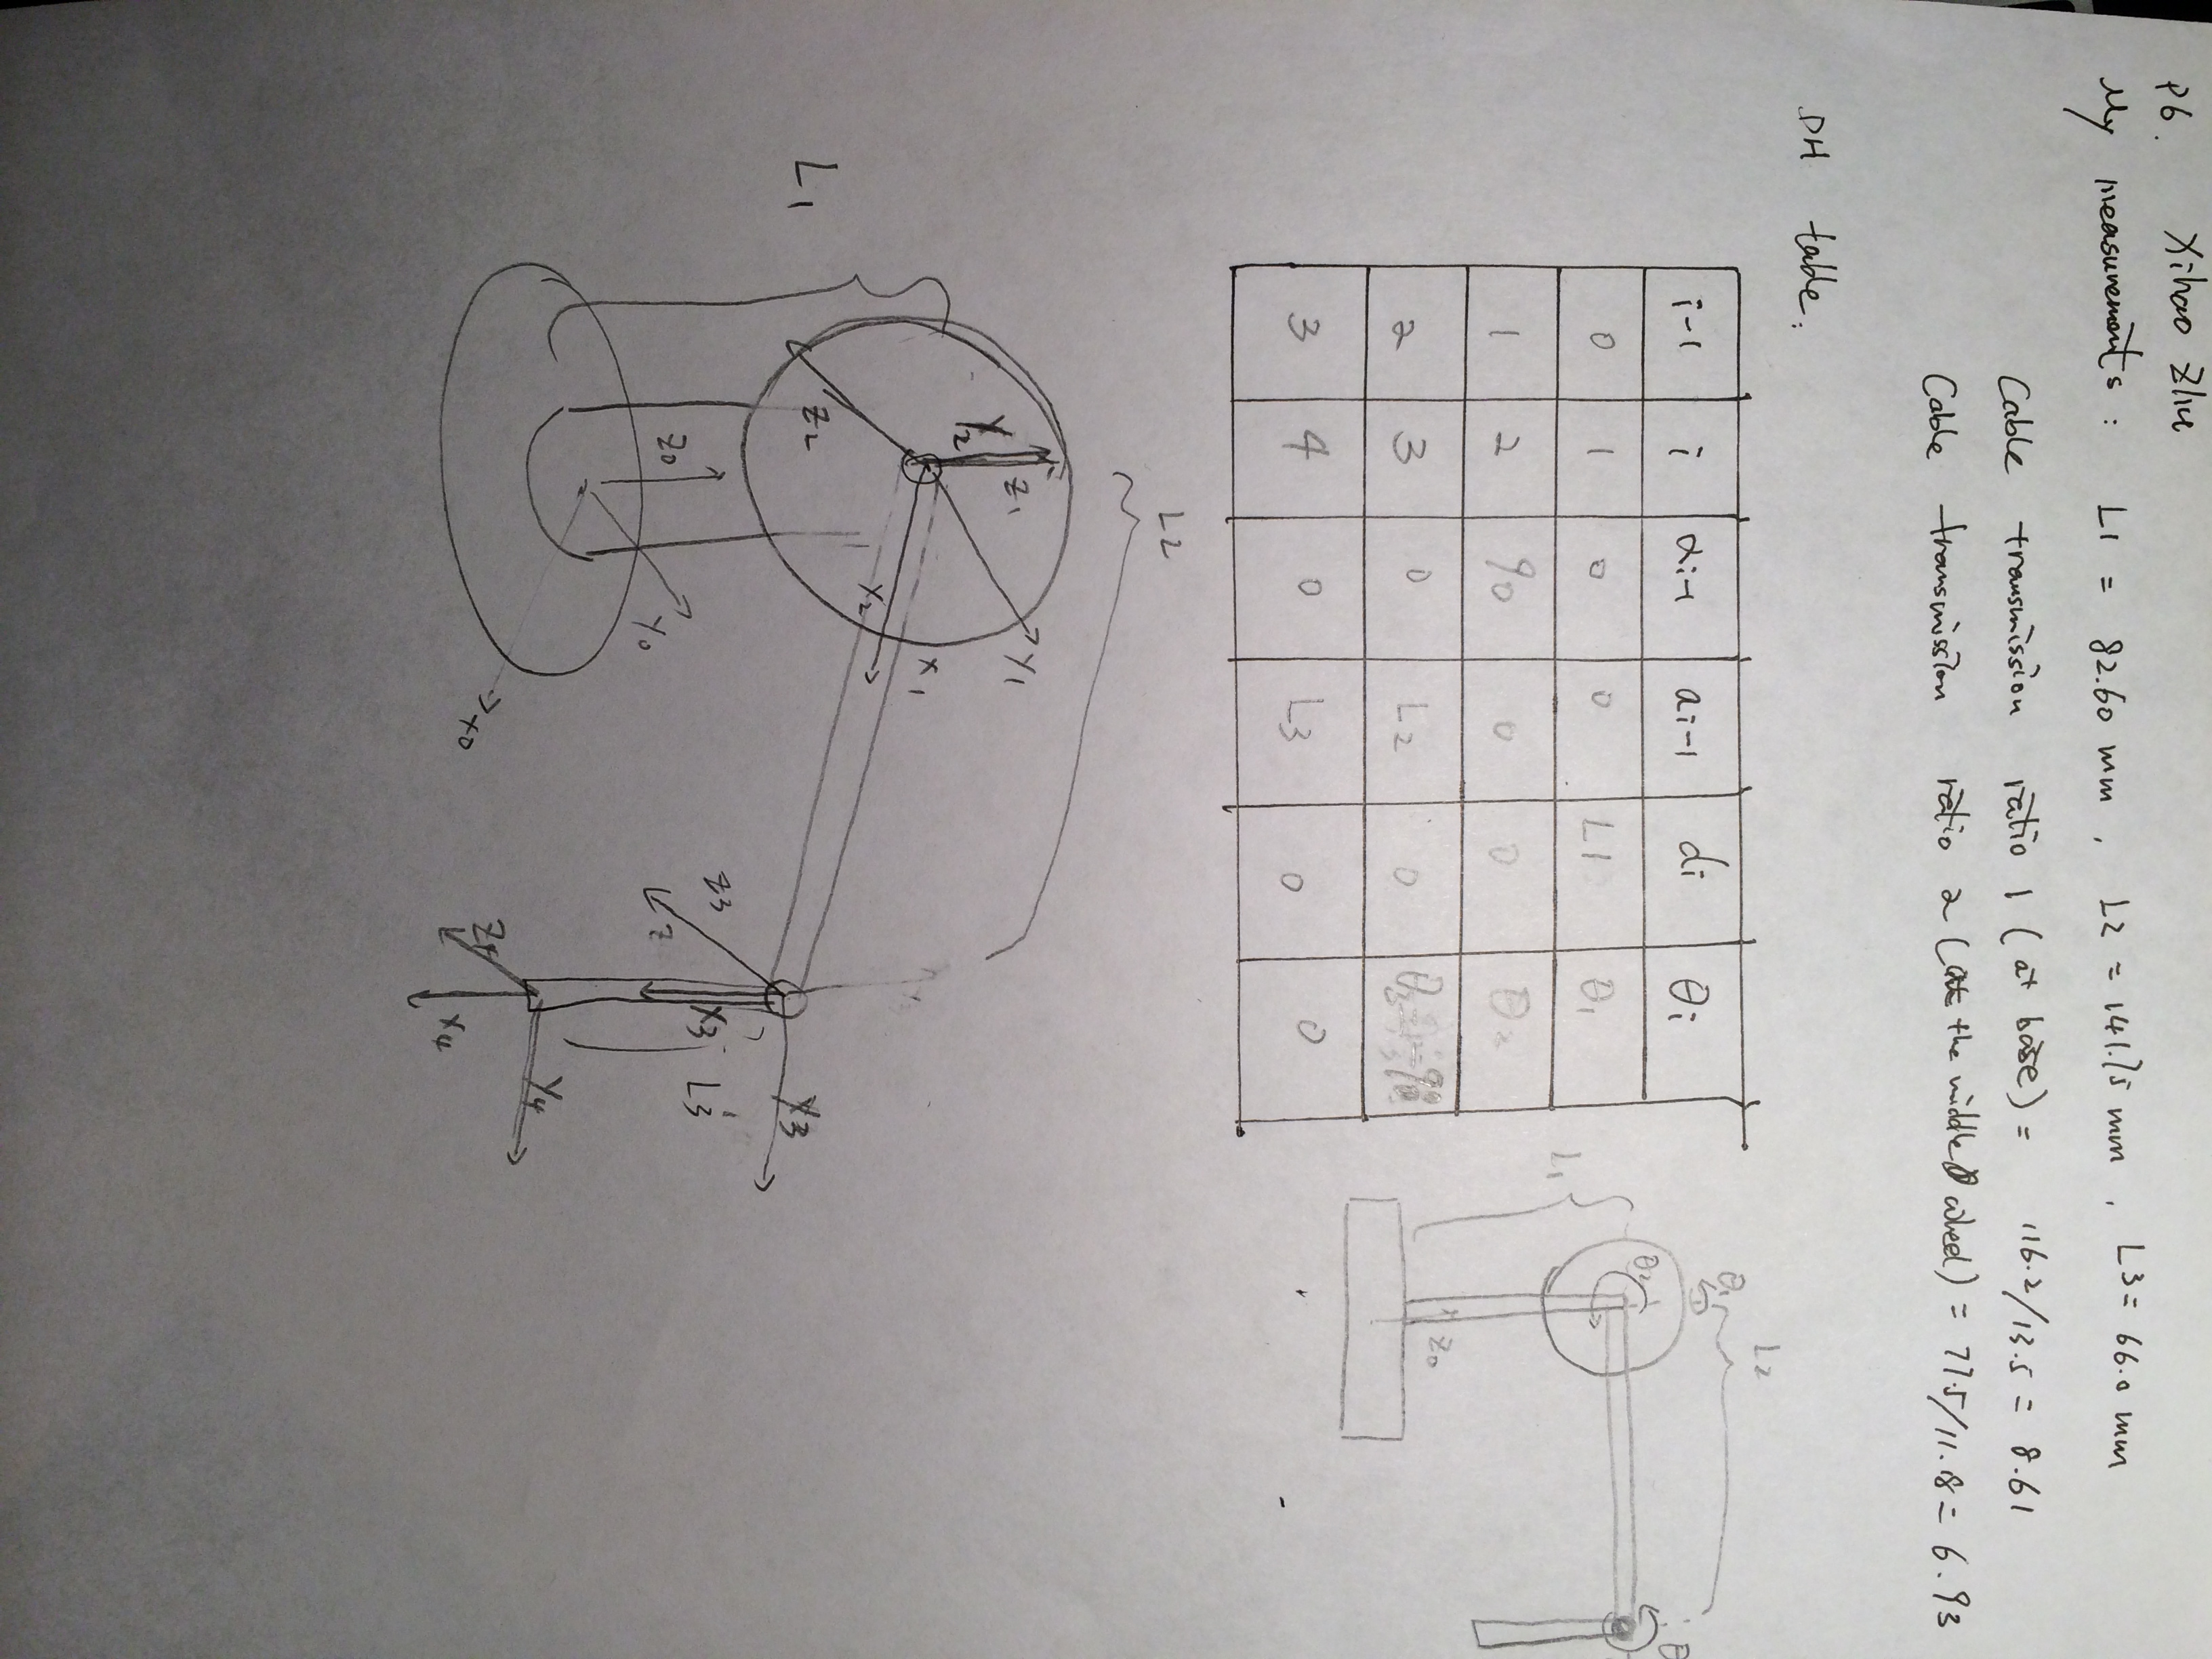 P6. Xihao Zhu
My measurements: L1 = 82.60 mm, L2 = 141.75 mm, L3 = 66.0 mm
Cable transmission ratio 1 (at base) = 116.2/13.5 = 8.61
Cable transmission ratio 2 (at the middle wheel) = 77.5/11.8 = 6.93
DH table:
i-1 i αi-1 ai-1 di θi
0 1 0 0 L1 θ1
1 2 90 0 0 θ2
2 3 0 L2 0
3 4 0 L3 0 0
L1
L2
θ1
θ2
θ
Z0
L2
L1
Y2
Z1
Y1
X1
X2
Z2
Z0
Y0
X0
Z3
Z
X3
Y3
L3
Z4
Y4
X4